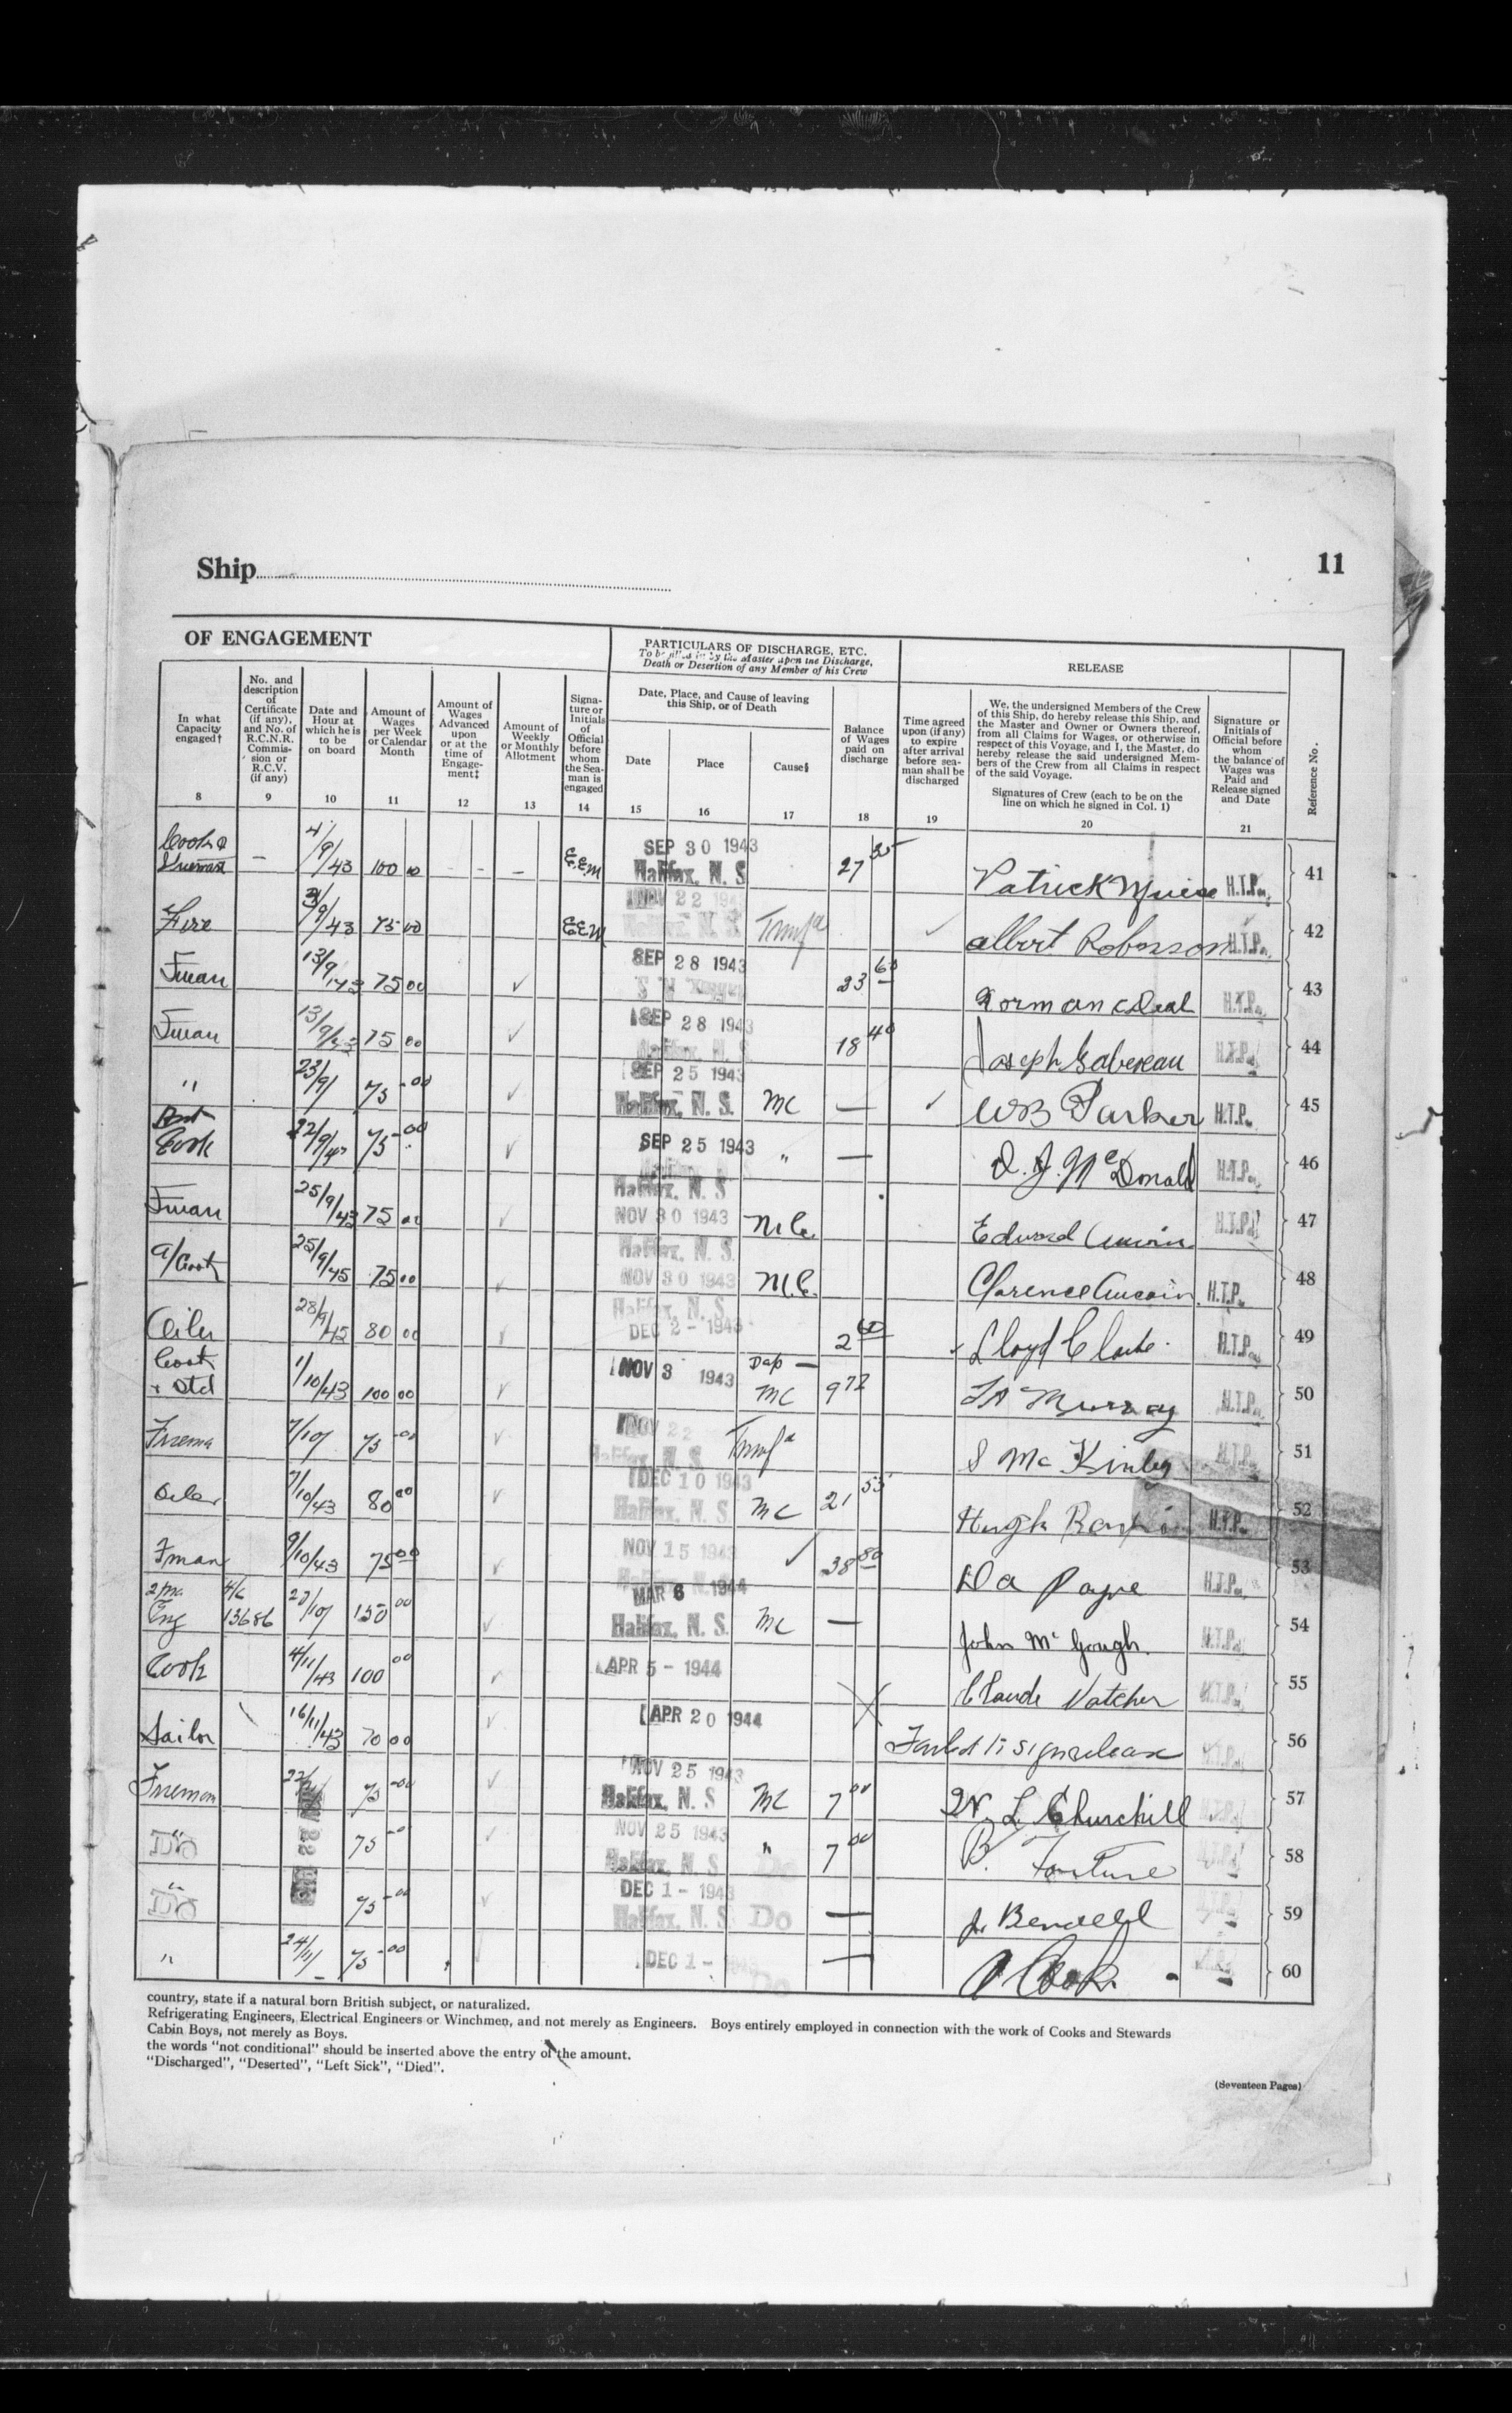 Ship
11
OF ENGAGEMENT
PARTICULARS OF DISCHARGE, ETC.
To be filled in by the Master upon the Discharge,
Death or Desertion of any Member of his Crew
RELEASE
In what Capacity engaged†
No. and description of Certificate (if any), and No. of R.C.N.R. Commis-sion or R.C.V. (if any)
Date and Hour at which he is to be on board
Amount of Wages per Week or Calendar Month
Amount of Wages Advanced upon or at the time of Engage-ment‡
Amount of Weekly or Monthly Allotment
Signa-ture or Initials of Official before whom the Sea-man is engaged
Date, Place, and Cause of leaving this Ship, or of Death
Date
Place
Cause§
Balance of Wages paid on discharge
Time agreed upon (if any) to expire after arrival before sea-man shall be discharged
We, the undersigned Members of the Crew of this Ship, do hereby release this Ship, and the Master and Owner or Owners thereof, from all Claims for Wages, or otherwise in respect of this Voyage, and I, the Master, do hereby release the said undersigned Mem-bers of the Crew from all Claims in respect of the said Voyage.
Signatures of Crew (each to be on the line on which he signed in Col. 1)
Signature or Initials of Official before whom the balance of Wages was Paid and Release signed and Date
Reference No.
8 9 10 11 12 13 14 15 16 17 18 19 20 21
Cook & 4/9/43 100 00 E.E.M SEP 30 1943 Halifax, N. S. 27 Patrick H.T.P. 41
Fire /9/43 75 00 E.E.M NOV 22 1943 Halifax, N. S. Albert Robinson H.T.P. 42
Fman 13/9/43 75 00 SEP 28 1943 23 60 Norman H.T.P. 43
Fman 13/9/43 75 00 SEP 28 1943 Halifax, N. S. 18 40 Joseph Gabereau H.T.P. 44
" 23/9/ 75-00 SEP 25 1943 Halifax, N. S. MC — WB Parker H.T.P. 45
Cook 22/9/43 75-00 SEP 25 1943 Halifax, N. S. " — D. J. McDonald H.T.P. 46
Fman 25/9/43 75 00 NOV 30 1943 Halifax, N. S. M.C. Edward H.T.P. 47
A/Cook 25/9/43 75 00 NOV 30 1943 Halifax, N. S. M.C. Clarence Aucoin H.T.P. 48
Oiler 28/9/43 80 00 DEC 2 - 1943 Halifax, N. S. 2 60 Lloyd Clarke H.T.P. 49
Cook + Std 1/10/43 100 00 NOV 3 1943 MC 9 72 Murray H.T.P. 50
Firema 7/10/ 75-00 NOV 22 Halifax, N. S. S McKinley H.T.P. 51
Oiler 7/10/43 80 00 DEC 10 1943 Halifax, N. S. MC 21 55 Hugh H.T.P. 52
Fman 9/10/43 75 00 NOV 15 1943 38 80 Payne H.T.P. 53
Eng 13686 /10/ 150 00 MAR 6 1944 Halifax, N. S. MC — John McGough H.T.P. 54
Cook 4/11/43 100 00 APR 5 - 1944 Claude Vatcher H.T.P. 55
Sailor 16/11/43 70 00 APR 20 1944 Failed to sign release H.T.P. 56
Fireman 75-00 NOV 25 1943 Halifax, N. S. MC 7 00 L Churchill 57
Do 75-00 NOV 25 1943 Halifax, N. S. " 7 00 Fortune 58
Do 75-00 DEC 1 - 1943 Halifax, N. S. Do — J. Bendell 59
" 24/11/ 75-00 DEC 1 - 1943 Do — Cook 60
country, state if a natural born British subject, or naturalized.
Refrigerating Engineers, Electrical Engineers or Winchmen, and not merely as Engineers. Boys entirely employed in connection with the work of Cooks and Stewards
Cabin Boys, not merely as Boys.
the words "not conditional" should be inserted above the entry of the amount.
"Discharged", "Deserted", "Left Sick", "Died".
(Seventeen Pages)